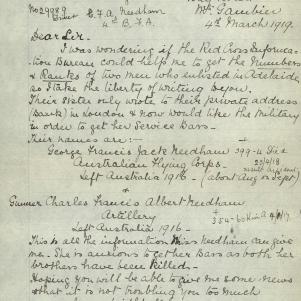 No 29989
Gunner E. F. A. Needham
4th B.F.A.
Mt. Gambier
4th March 1919.
Dear Sir.
I was wondering if the Red Cross Informa-
tion Bureau could help me to get the Numbers
& Ranks of two men who enlisted in Adelaide
so I take the liberty of Writing to you.
Their Sister only wrote to their private address
(Bank) in London & now would like the Military
in order to get her Service Bars.
Their names are:-
George Francis Jack Needham 399-4 Sec
Australian Flying Corps.
Left Australia 1916 - (about Aug or Sept)
&
Gunner Charles Francis Albert Needham
Artillery
Left Australia 1916 -
This is all the information Miss Needham can give
me. She is anxious to get her Bars as both her
brothers have been Killed.
Hoping you will be able to give me some news
& that it is not troubling you too much